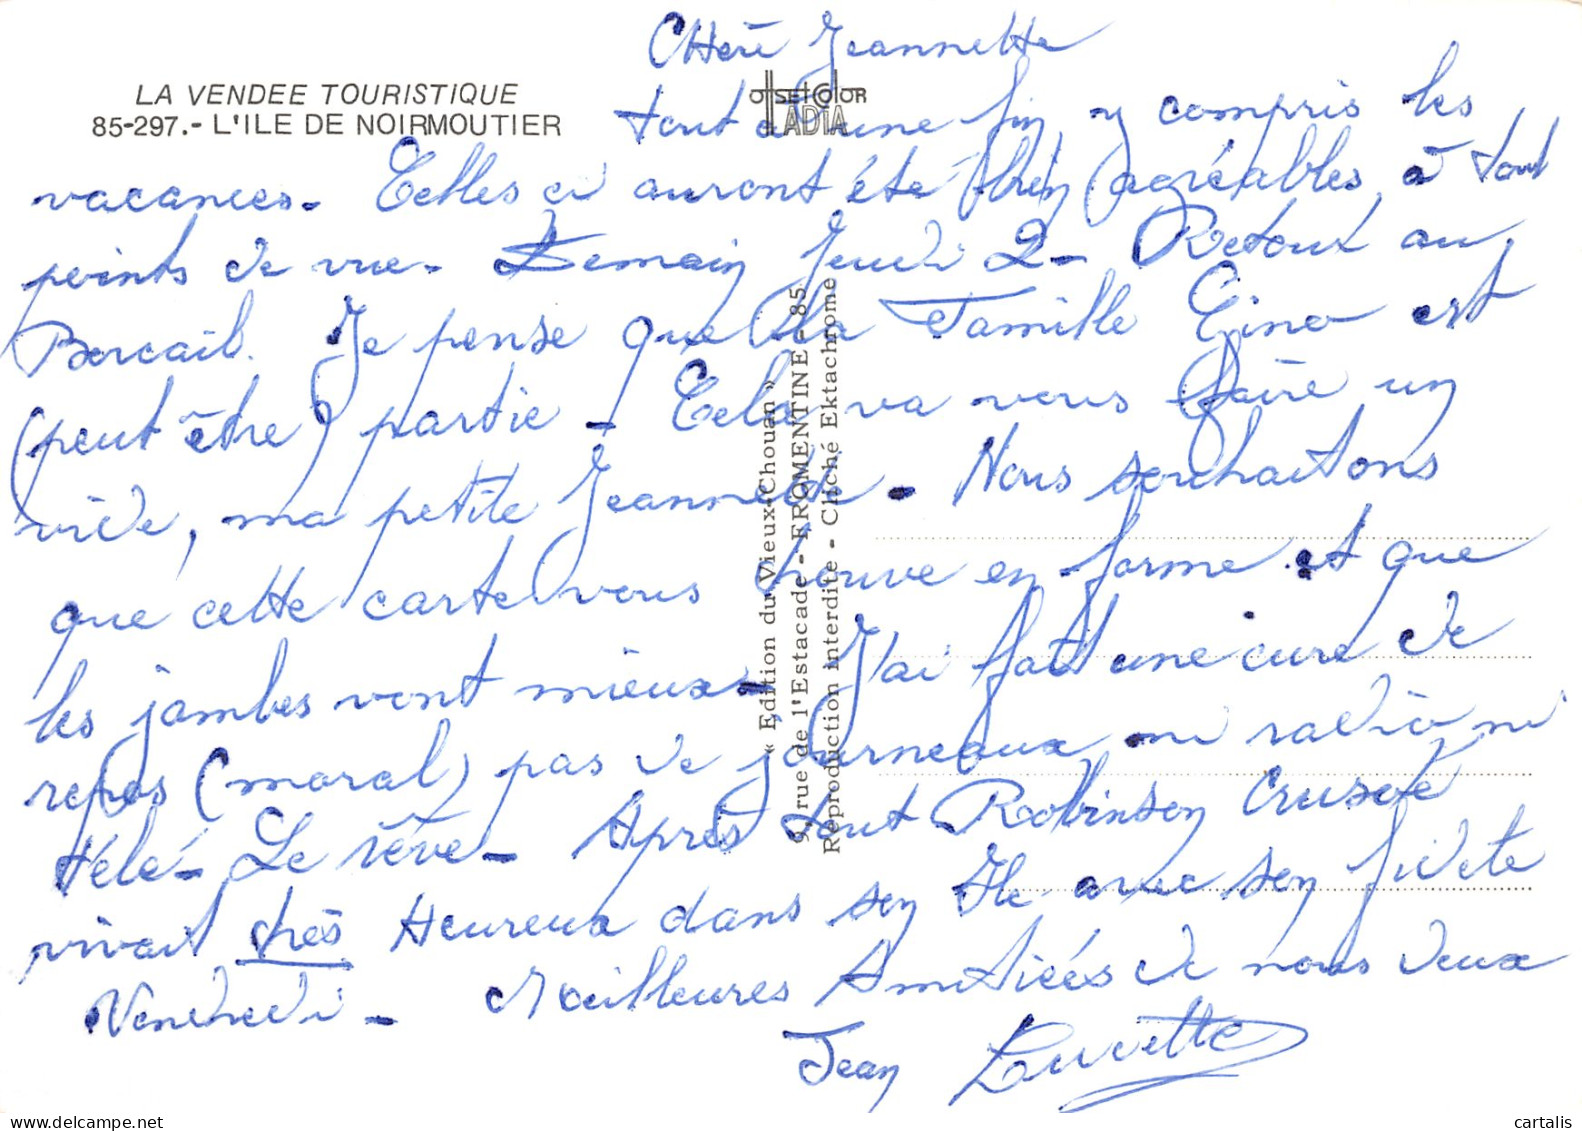 LA VENDEE TOURISTIQUE
85-297.- L'ILE DE NOIRMOUTIER
OffSETCOLOR
IADIA
« Edition du Vieux-Chouan »
9, rue de l'Estacade - FROMENTINE - 85
Reproduction interdite - Cliché Ektachrome
CHère Jeannette
tout a une fin, y compris les
vacances. Celles ci auront été bien agréables, à tout
points de vue. Demain Jeudi 2 - Retour au
Bercail. Je pense que la Famille Gino est
(peut être) partie - Cela va vous faire un
vide, ma petite Jeannette. Nous souhaitons
que cette carte vous trouve en forme et que
les jambes vont mieux. J'ai fait une cure de
repos (moral) pas de journeaux ni radio ni
télé - Le rêve - Après tout Robinson Crusoé
vivait très Heureux dans son Ile avec son fidèle
Vendredi - Meilleures Amitiées de nous deux
Jean Lucette
cartalis